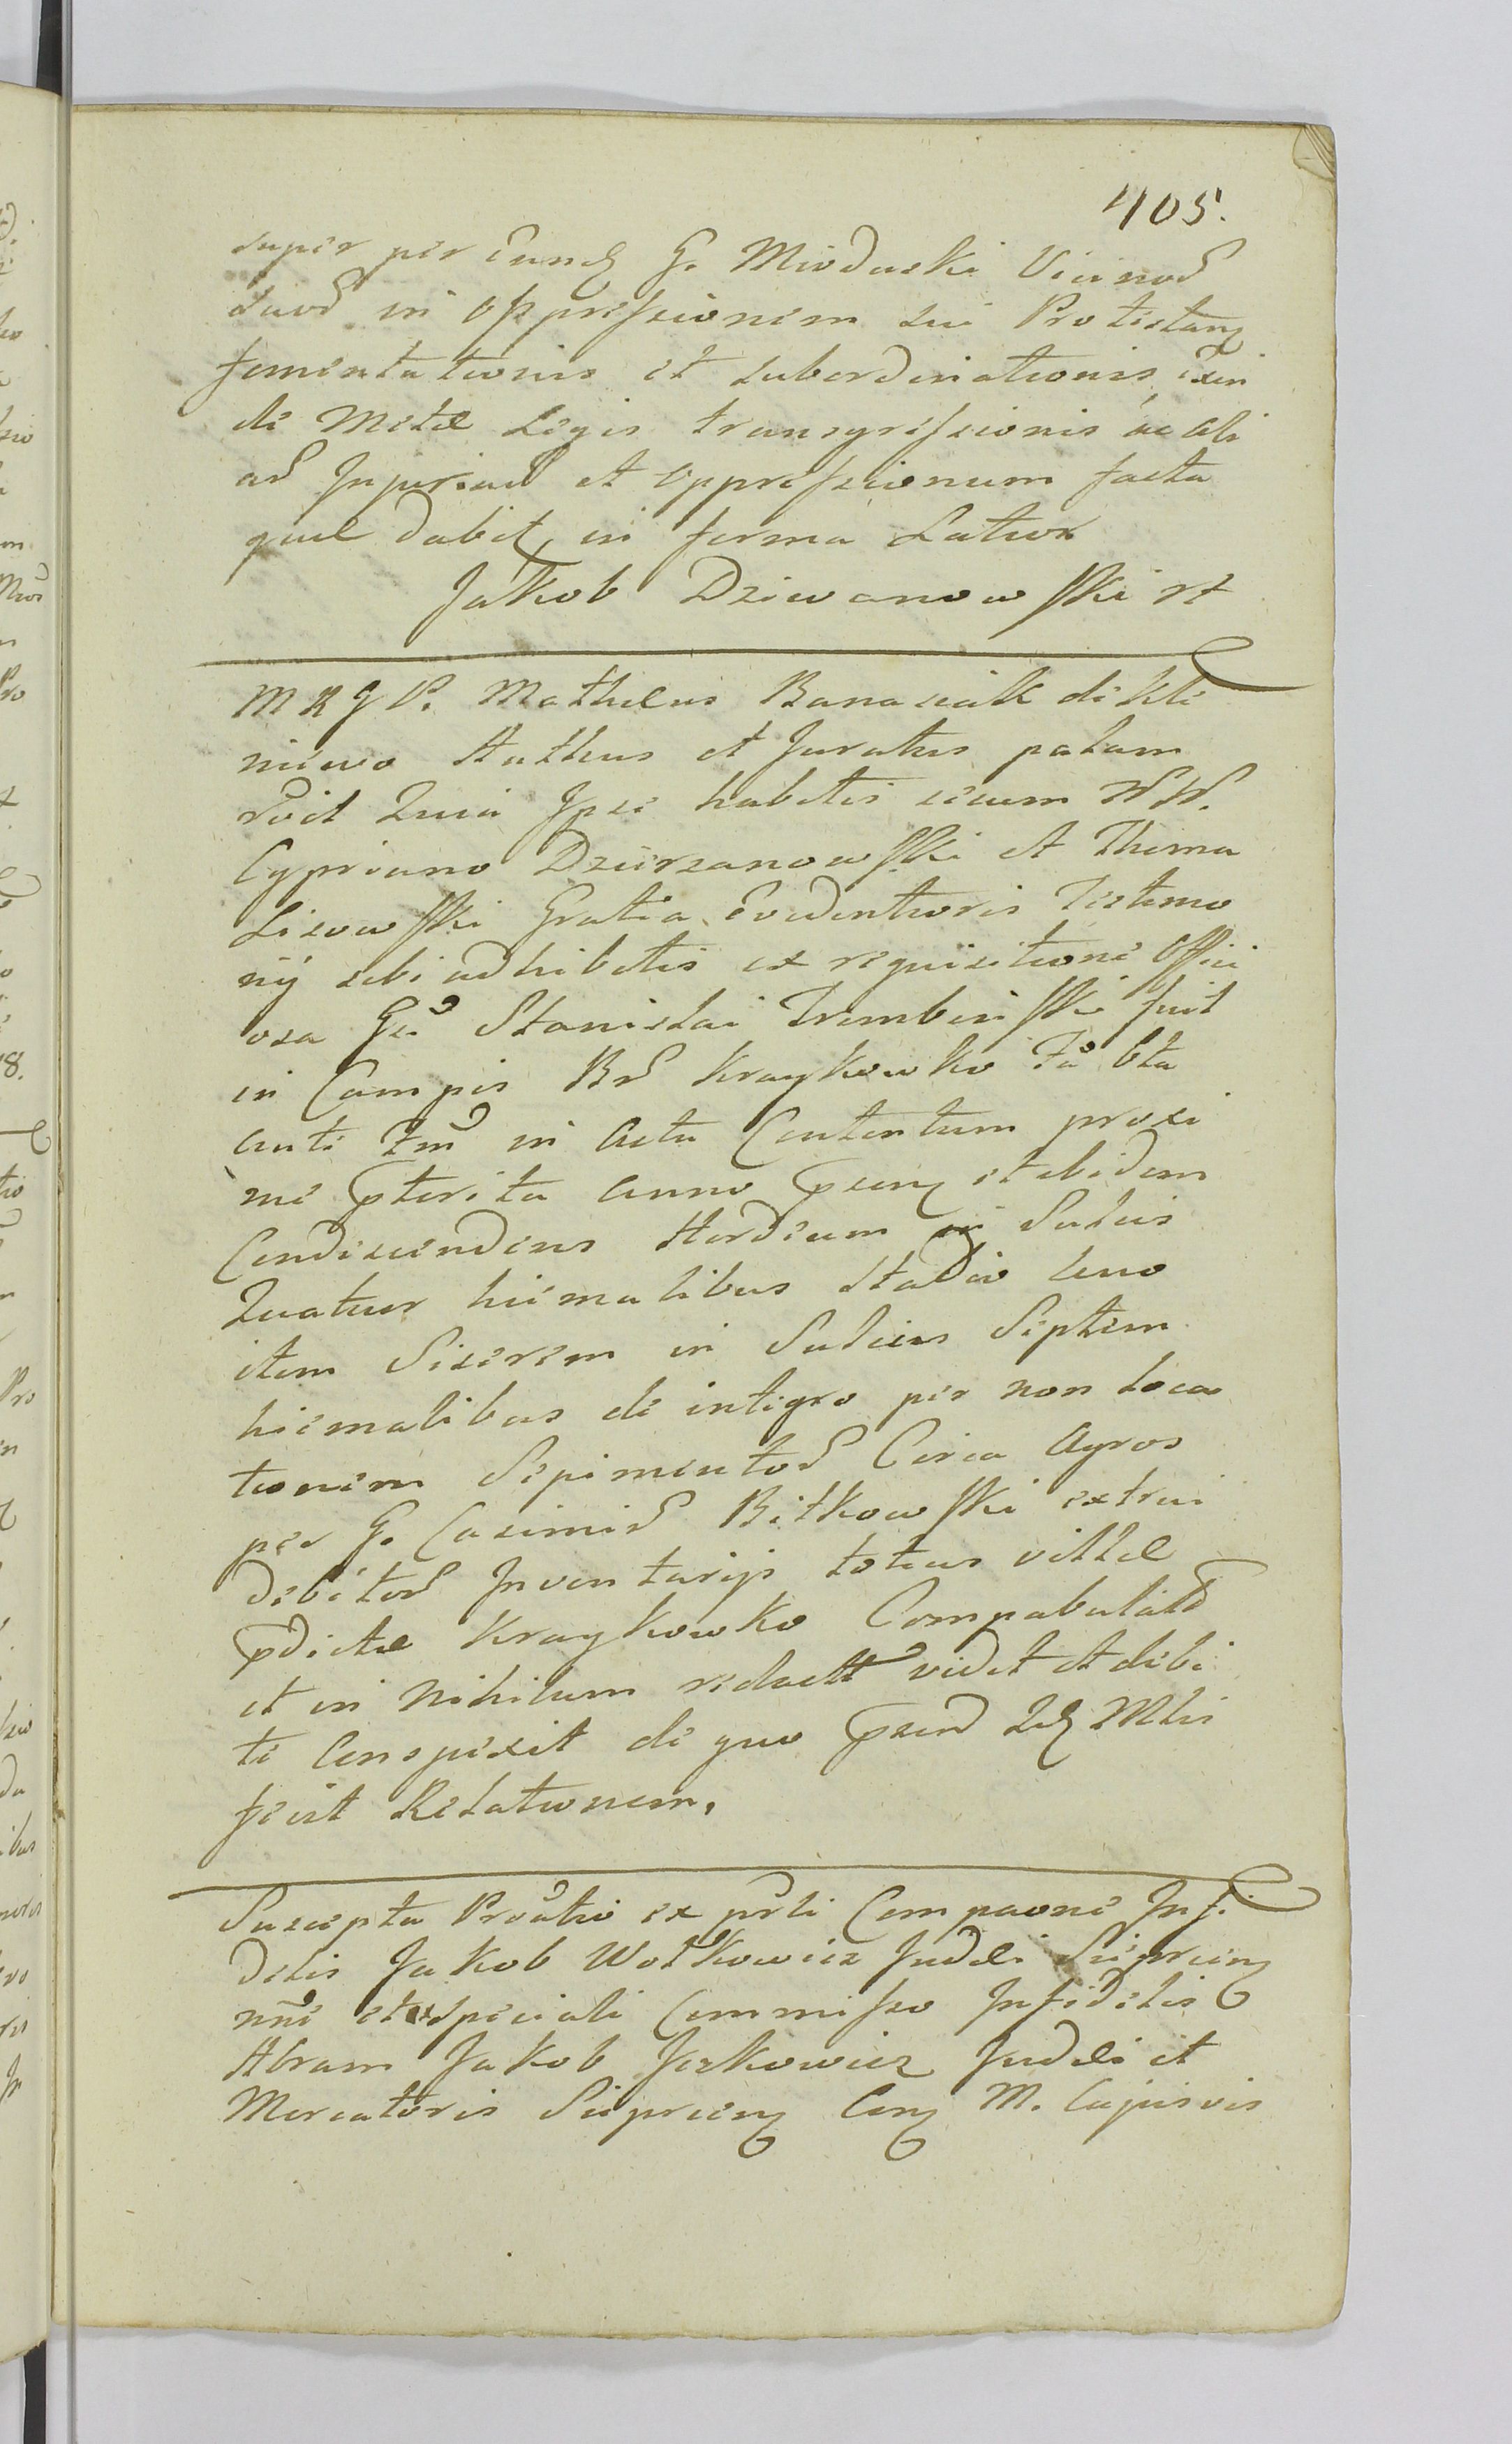 405.
super per Eund G. Mioduski Vicinod
suod in oppressionem sui Protestan
fomentationis et subordinationis, exin
de Metae Legis transgressionis ac ali
ad Injuriad et oppressionum facta
quae dabit, in forma Latior
Jakob Dziwanowski rt
M R G P. Mathaeus Banasiak de Kle
niewo Authus et Juratus palam
rdit Quia Ipse habitis secum NN.
Cypriano Dzierzanowski et Thoma
Lisowski Gratia Evidentioris Testimo
nÿ sibi adhibitis ex requisitione offici
osa Gsi Stanislai Trembinski fuit
in Campis Bd Kraykowko Fa 6ta
ante Fm in Actu Contentum proxi
me pterita Anno psen et ibidem
Condescendens Hordeum in Suleis
Quatuor hiemalibus Stadio uno
item Siserem in Suleis Septem
hiemalibus de integro per non loca
tionem Sepimentod Circa Agros
per G. Casimid Bitkowski extrui
debitod Inventarijs totius villae
pdictae Kraykowko Compabulatd
et in Nihilum redactt vidit et debi
te Conspexit de quo psend Qd Mlis
fecit Relationem.
Suscepta Prvatio ex prli Compaone Infi
delis Jakob Wolkowicz Judaei Sieprcen
nne et speciali Commisso Infidelis
Abram Jakob Joskowicz Judaei et
Mercatoris Sieprcen Con M. Cujusvis